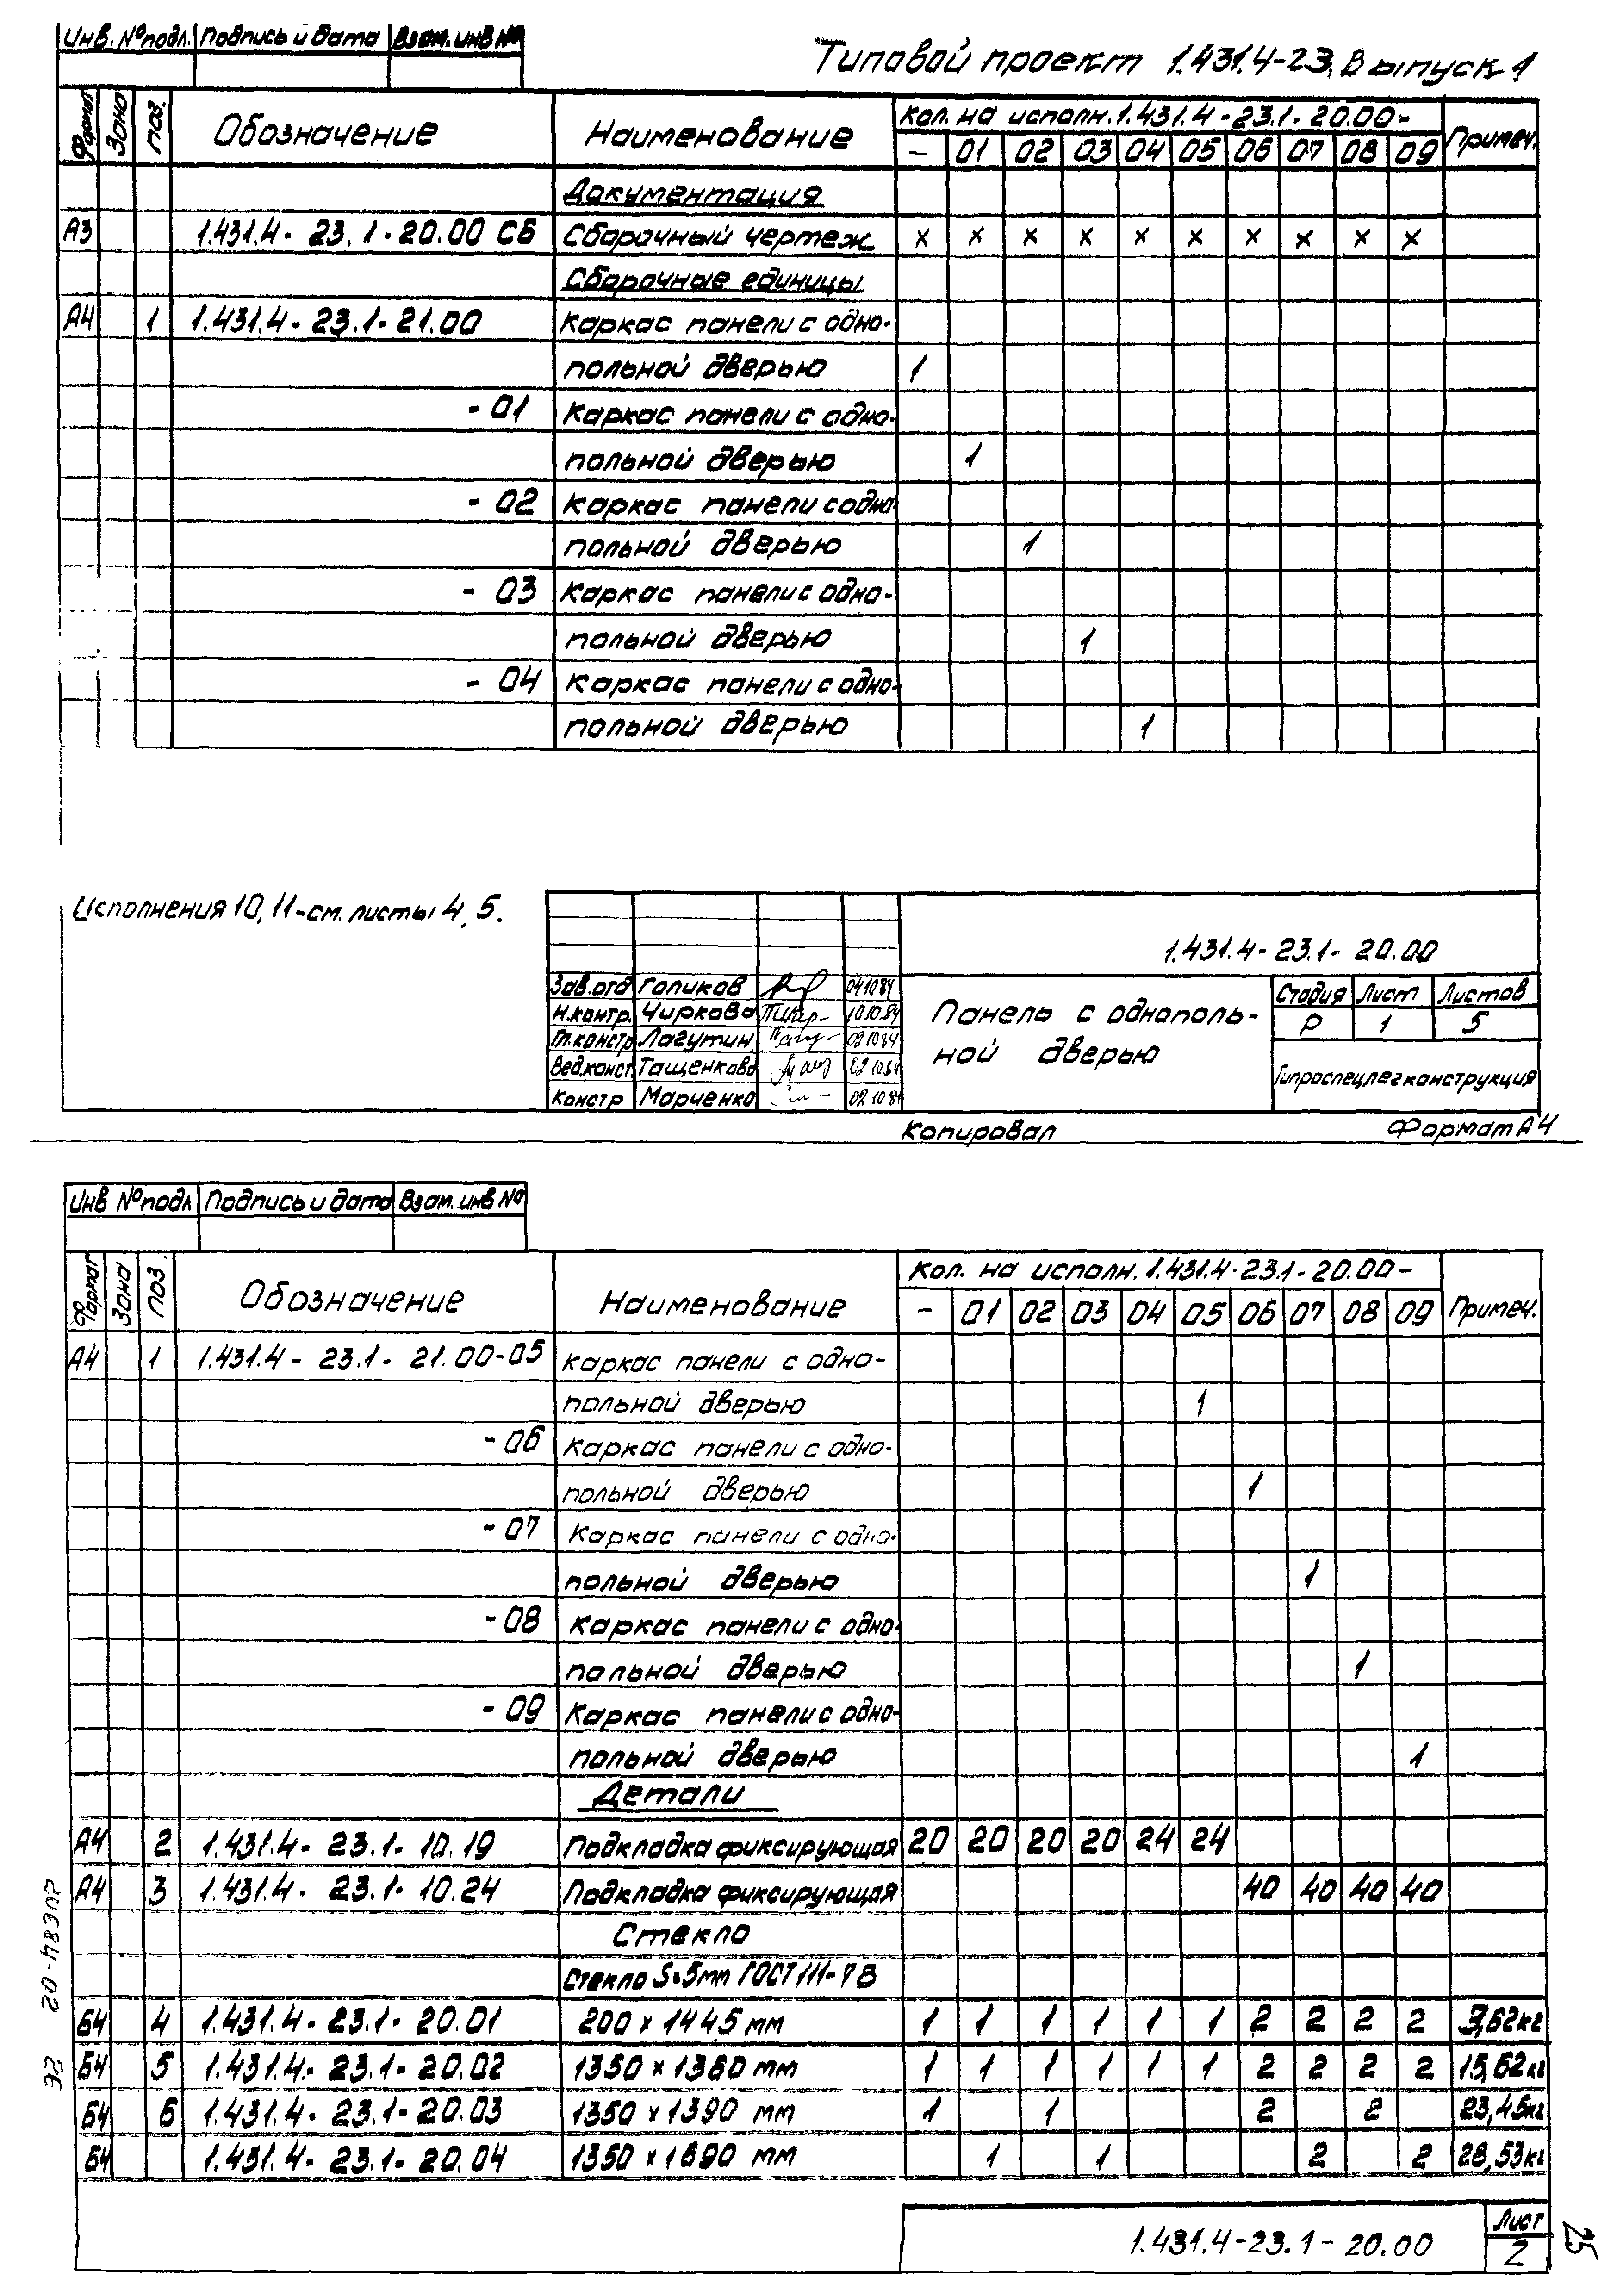 Инв. №подл. Подпись и дата Взам. инв №
Типовой проект 1.431.4-23. Выпуск 1
Формат Зона Поз. Обозначение Наименование Кол. на исполн. 1.431.4-23.1-20.00- Примеч.
- 01 02 03 04 05 06 07 08 09
Документация
А3 1.431.4-23.1-20.00 СБ Сборочный чертеж х х х х х х х х х х
Сборочные единицы
А4 1 1.431.4-23.1-21.00 Каркас панели с одно-
польной дверью 1
-01 Каркас панели с одно-
польной дверью 1
-02 Каркас панели с одно-
польной дверью 1
-03 Каркас панели с одно-
польной дверью 1
-04 Каркас панели с одно-
польной дверью 1
Исполнения 10, 11-см. листы 4, 5.
1.431.4-23.1-20.00
Зав.отд Голиков 041084
Н.контр. Чиркова 10.10.84
Гл.констр Лагутин 021084
Вед.конст. Тащенкова 021084
Констр Марченко 021084
Панель с однополь-
ной дверью
Стадия Лист Листов
Р 1 5
Гипроспецлегконструкция
Копировал Формат А4
Инв №подл Подпись и дата Взам. инв №
Формат Зона Поз. Обозначение Наименование Кол. на исполн. 1.431.4-23.1-20.00- Примеч.
- 01 02 03 04 05 06 07 08 09
А4 1 1.431.4-23.1-21.00-05 Каркас панели с одно-
польной дверью 1
-06 Каркас панели с одно-
польной дверью 1
-07 Каркас панели с одно-
польной дверью 1
-08 Каркас панели с одно-
польной дверью 1
-09 Каркас панели с одно-
польной дверью 1
Детали
А4 2 1.431.4-23.1-10.19 Подкладка фиксирующая 20 20 20 20 24 24
А4 3 1.431.4-23.1-10.24 Подкладка фиксирующая 40 40 40 40
Стекло
Стекло S=5мм ГОСТ 111-78
Б4 4 1.431.4-23.1-20.01 200×1445 мм 1 1 1 1 1 1 2 2 2 2 3,62кг
Б4 5 1.431.4-23.1-20.02 1350×1360 мм 1 1 1 1 1 1 2 2 2 2 15,62кг
Б4 6 1.431.4-23.1-20.03 1350×1390 мм 1 1 2 2 23,45кг
Б4 1.431.4-23.1-20.04 1350×1690 мм 1 1 2 2 28,53кг
1.431.4-23.1-20.00
Лист
2
25
20484-02 32